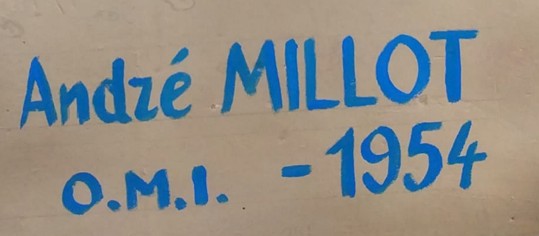 André MILLOT
O.M.I. - 1954